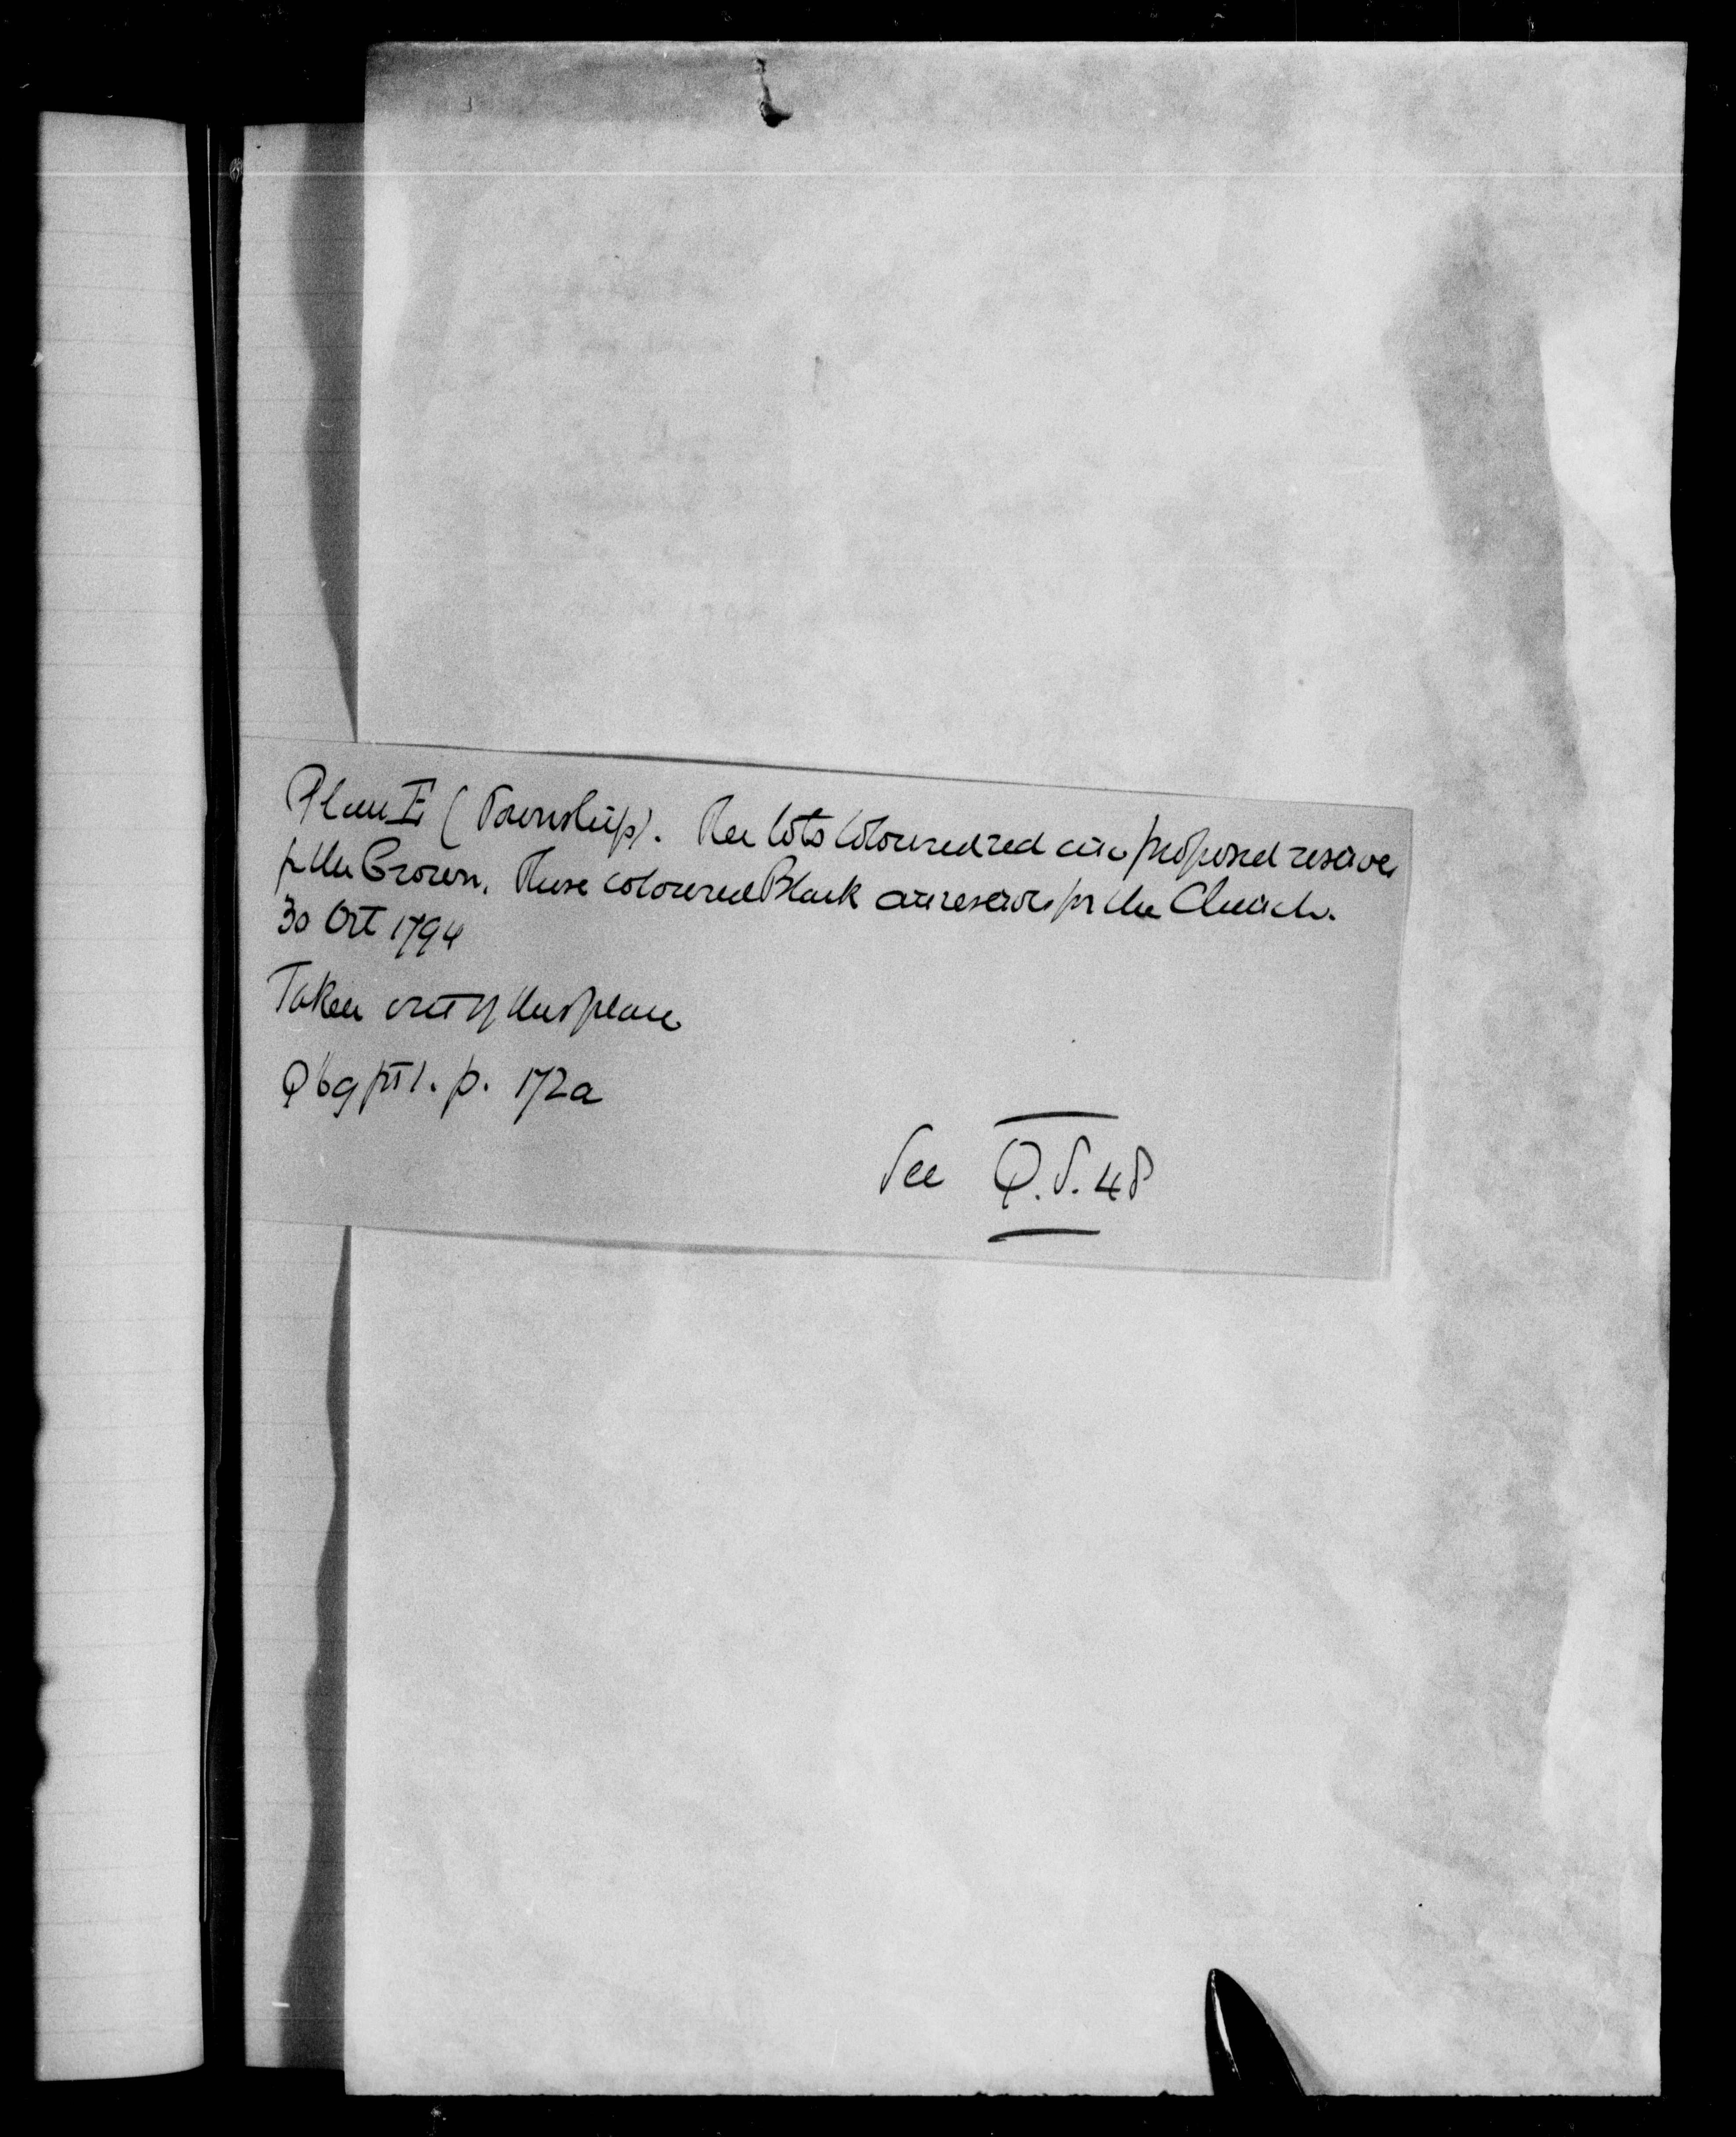 Plan E (Township). The lots coloured red are proposed reserves
for the Crown. Those coloured Black are reserves for the Church.
30 Oct 1794
Taken out of this place
Q 69 pt 1. p. 172a
See Q.S. 48